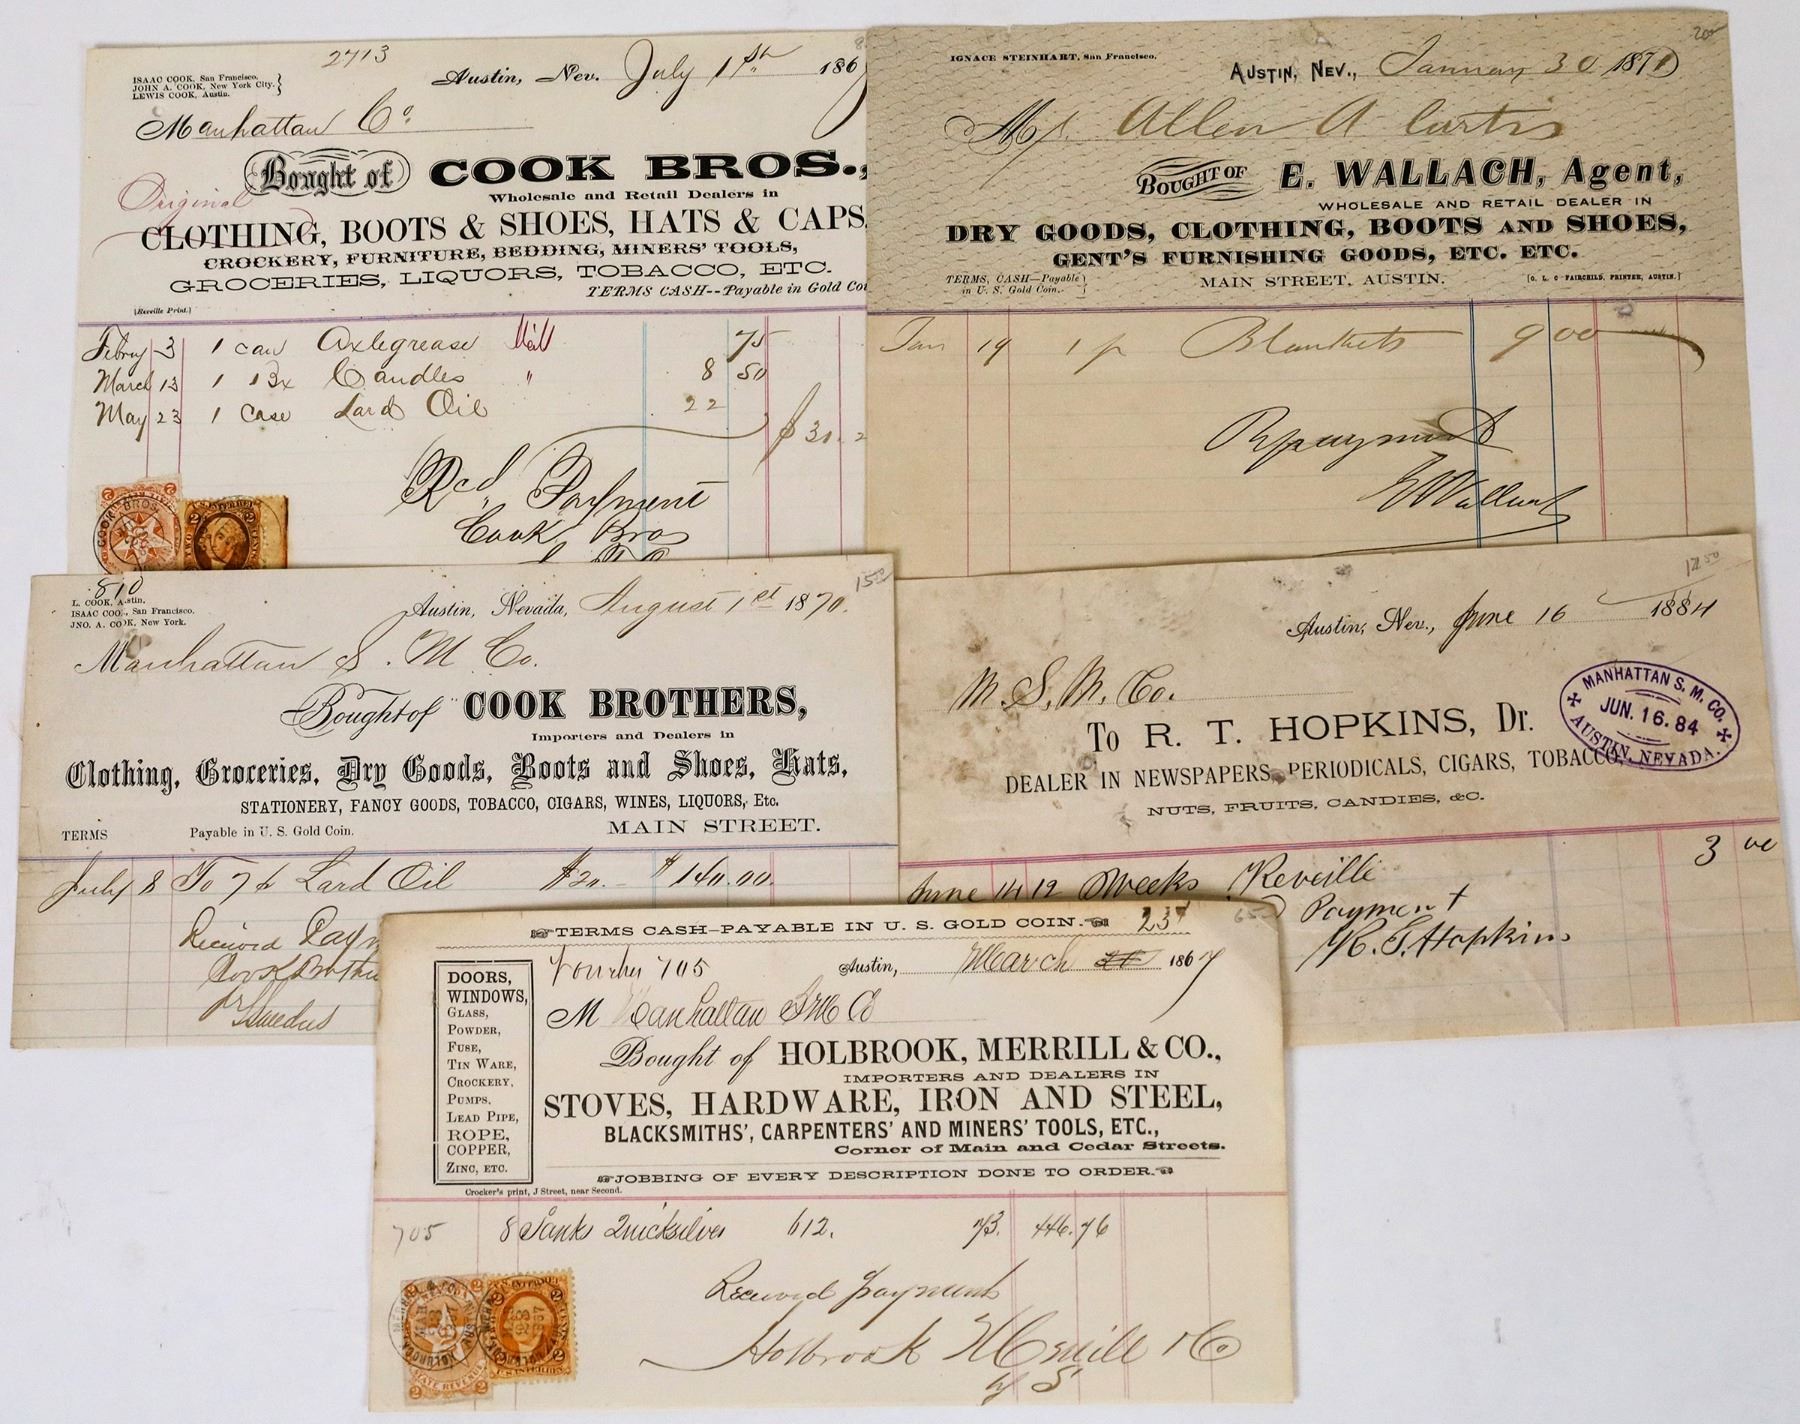 2713
ISAAC COOK, San Francisco.
JOHN A. COOK, New York City.
LEWIS COOK, Austin.
Austin, Nev. July 1st 186
Manhattan Co.
Bought of COOK BROS.,
Original
Wholesale and Retail Dealers in
CLOTHING, BOOTS & SHOES, HATS & CAPS,
CROCKERY, FURNITURE, BEDDING, MINERS' TOOLS,
GROCERIES, LIQUORS, TOBACCO, ETC.
TERMS CASH--Payable in Gold Coi
(Reveille Print.)
Febry 3 1 can Axlegrease Mill 75
March 13 1 Bx Candles " 8 50
May 23 1 Case Lard Oil 22
$ 31. 2
Rcd Payment
Cook Bros
COOK BROS
IGNACE STEINHART, San Francisco.
AUSTIN, NEV., January 30 1871
Mr. Allen A Curtis
BOUGHT OF E. WALLACH, Agent,
WHOLESALE AND RETAIL DEALER IN
DRY GOODS, CLOTHING, BOOTS AND SHOES,
GENT'S FURNISHING GOODS, ETC. ETC.
TERMS, CASH—Payable in U. S. Gold Coin.
MAIN STREET, AUSTIN.
[O. L. C. FAIRCHILD, PRINTER, AUSTIN.]
Jan 19 1 p Blankets 9 00
Rpayment
E Wallach
810
L. COOK, Austin.
ISAAC COO., San Francisco.
JNO. A. COOK, New York.
15.00
Austin, Nevada, August 1st 1870.
Manhattan S. M Co.
Bought of COOK BROTHERS,
Importers and Dealers in
Clothing, Groceries, Dry Goods, Boots and Shoes, Hats,
STATIONERY, FANCY GOODS, TOBACCO, CIGARS, WINES, LIQUORS, Etc.
TERMS Payable in U. S. Gold Coin. MAIN STREET.
July 8 To 7 Lard Oil $20.— $140.00.
Received Paym
Cook Brothe
Austin, Nev., June 16 1884
M. S. M. Co.
MANHATTAN S. M. CO.
JUN. 16. 84
AUSTIN, NEVADA.
To R. T. HOPKINS, Dr.
DEALER IN NEWSPAPERS, PERIODICALS, CIGARS, TOBACCO,
NUTS, FRUITS, CANDIES, &C.
June 14 12 Weeks Reveille 3 00
Payment
R. T. Hopkins
TERMS CASH—PAYABLE IN U. S. GOLD COIN. 237
Voucher 705 Austin, March 1867
M Manhattan S M Co
DOORS,
WINDOWS,
GLASS,
POWDER,
FUSE,
TIN WARE,
CROCKERY,
PUMPS,
LEAD PIPE,
ROPE,
COPPER,
ZINC, ETC.
Bought of HOLBROOK, MERRILL & CO.,
IMPORTERS AND DEALERS IN
STOVES, HARDWARE, IRON AND STEEL,
BLACKSMITHS', CARPENTERS' AND MINERS' TOOLS, ETC.,
Corner of Main and Cedar Streets.
JOBBING OF EVERY DESCRIPTION DONE TO ORDER.
Crocker's print, J Street, near Second.
705 8 Tanks Quicksilver 612. 73. 446.76
Received payment
Holbrook Merrill & Co
by S